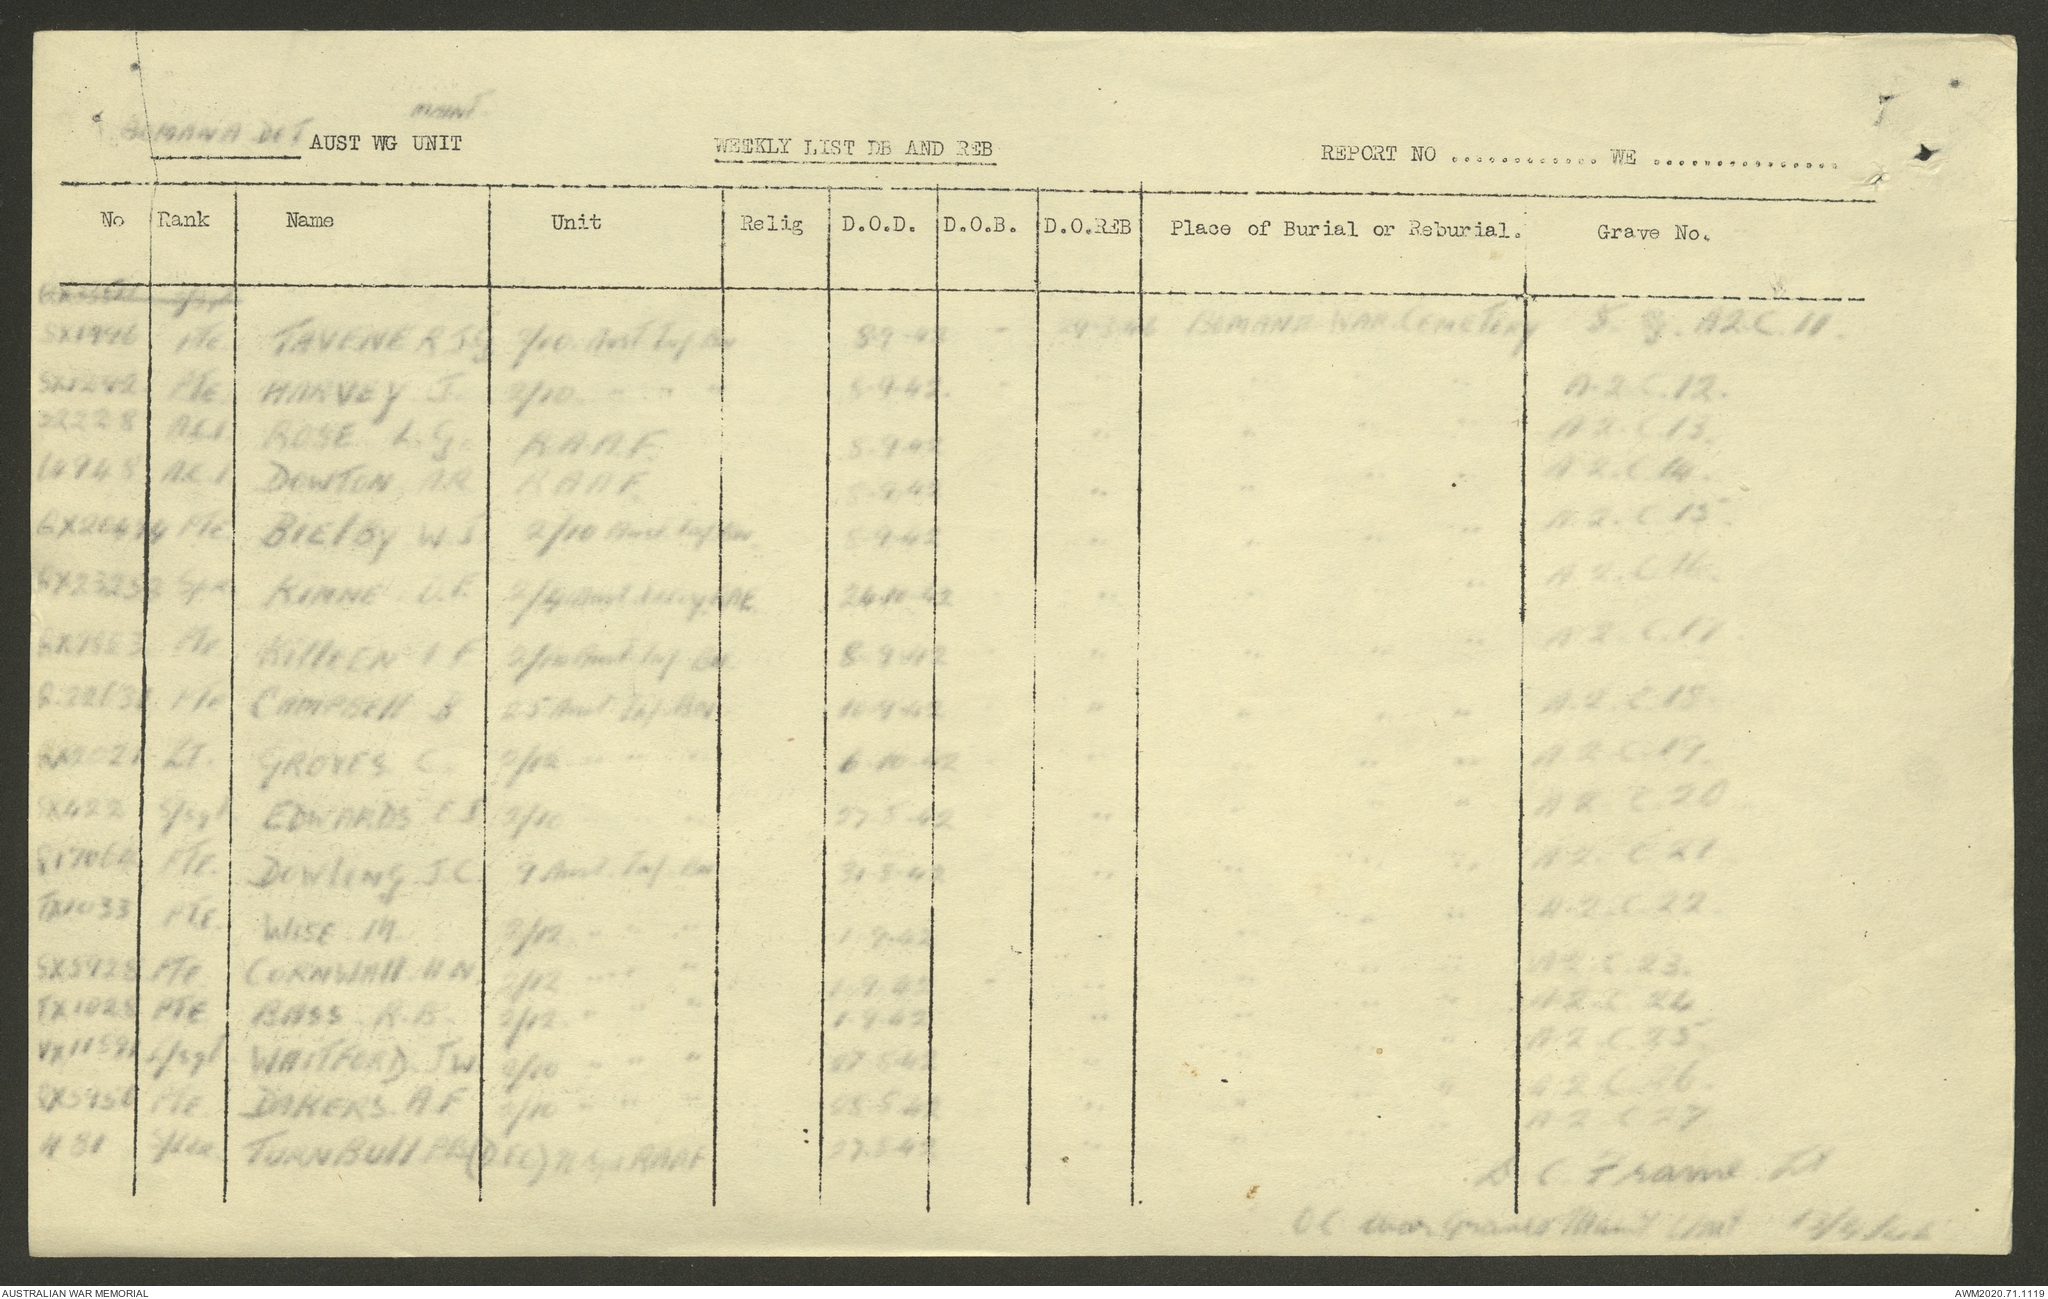 MAINT
BOMANA DET AUST WG UNIT WEEKLY LIST DB AND REB REPORT NO ............. WE ................
No Rank Name Unit Relig D.O.D. D.O.B. D.O.REB Place of Burial or Reburial. Grave No.
SX1996 Pte TAVENER J.G 2/10 Aust Inf Bn 8-9-42 - BOMANA WAR CEMETERY A2.C.11.
Pte HARVEY J. 2/10 " " " 8-9-42. " " " " A.2.C.12.
AC1. ROSE L.G. R.A.A.F. 8-9-42 " " " " A.2.C.13.
AC1 DOWTON A.R R.A.A.F. 8-9-42 " " " " A.2.C.14.
Pte BIELBY W.J 2/10 Aust Inf Bn 8-9-42 " " " " A.2.C.15.
Spr KINNE O.F. 24-10-42 " " " " A.2.C.16.
Pte KILLEEN I F 2/10 Aust Inf Bn 8-9-42 " " " " A.2.C.17.
Pte CAMPBELL B 25 Aust Inf Bn 10-9-42 " " " " A.2.C.18.
Lt. GROVES C. 2/12 " " " 6-10-42 " " " " A.2.C.19.
SX422 S/Sgt EDWARDS E J 2/10 " " " 27-8-42 " " " " A.2.C.20
Pte. DOWLING J.C. 9 Aust. Inf Bn 31-8-42 " " " " A.2.C.21.
TX1033 Pte. WISE M. 2/12. " " " 1-9-42 " " " " A.2.C.22.
SX5928 Pte CORNWALL H N. 2/12 " " " 1-9-42 " " " " A.2.C.23.
TX1028 Pte BASS R.B. 2/12. " " " 1-9-42 " " " " A.2.C.24
L/Sgt WAITFORD. J W. 2/10 " " " 27-8-42 " " " " A.2.C.25.
Pte DAKERS. A F 2/10 " " " 28-8-42 " " " " A.2.C.26.
481 S/Ldr. TURNBULL P.B. (DFC) RAAF 27-8-42 " " " " A.2.C.27
D C Frame Lt
OC War Graves Maint Unit
AUSTRALIAN WAR MEMORIAL AWM2020.71.1119